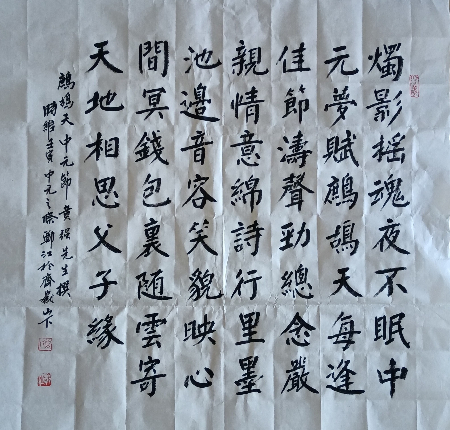 燭影摇魂夜不眠中
元夢賦鷓鴣天每逢
佳節濤聲勁總念嚴
親情意綿詩行里墨
池邊音容笑貌映心
間冥錢包裹随雲寄
天地相思父子緣
鷓鴣天 中元節 黄强先生撰
時維壬寅中元之際鄭江於齊嶽山下